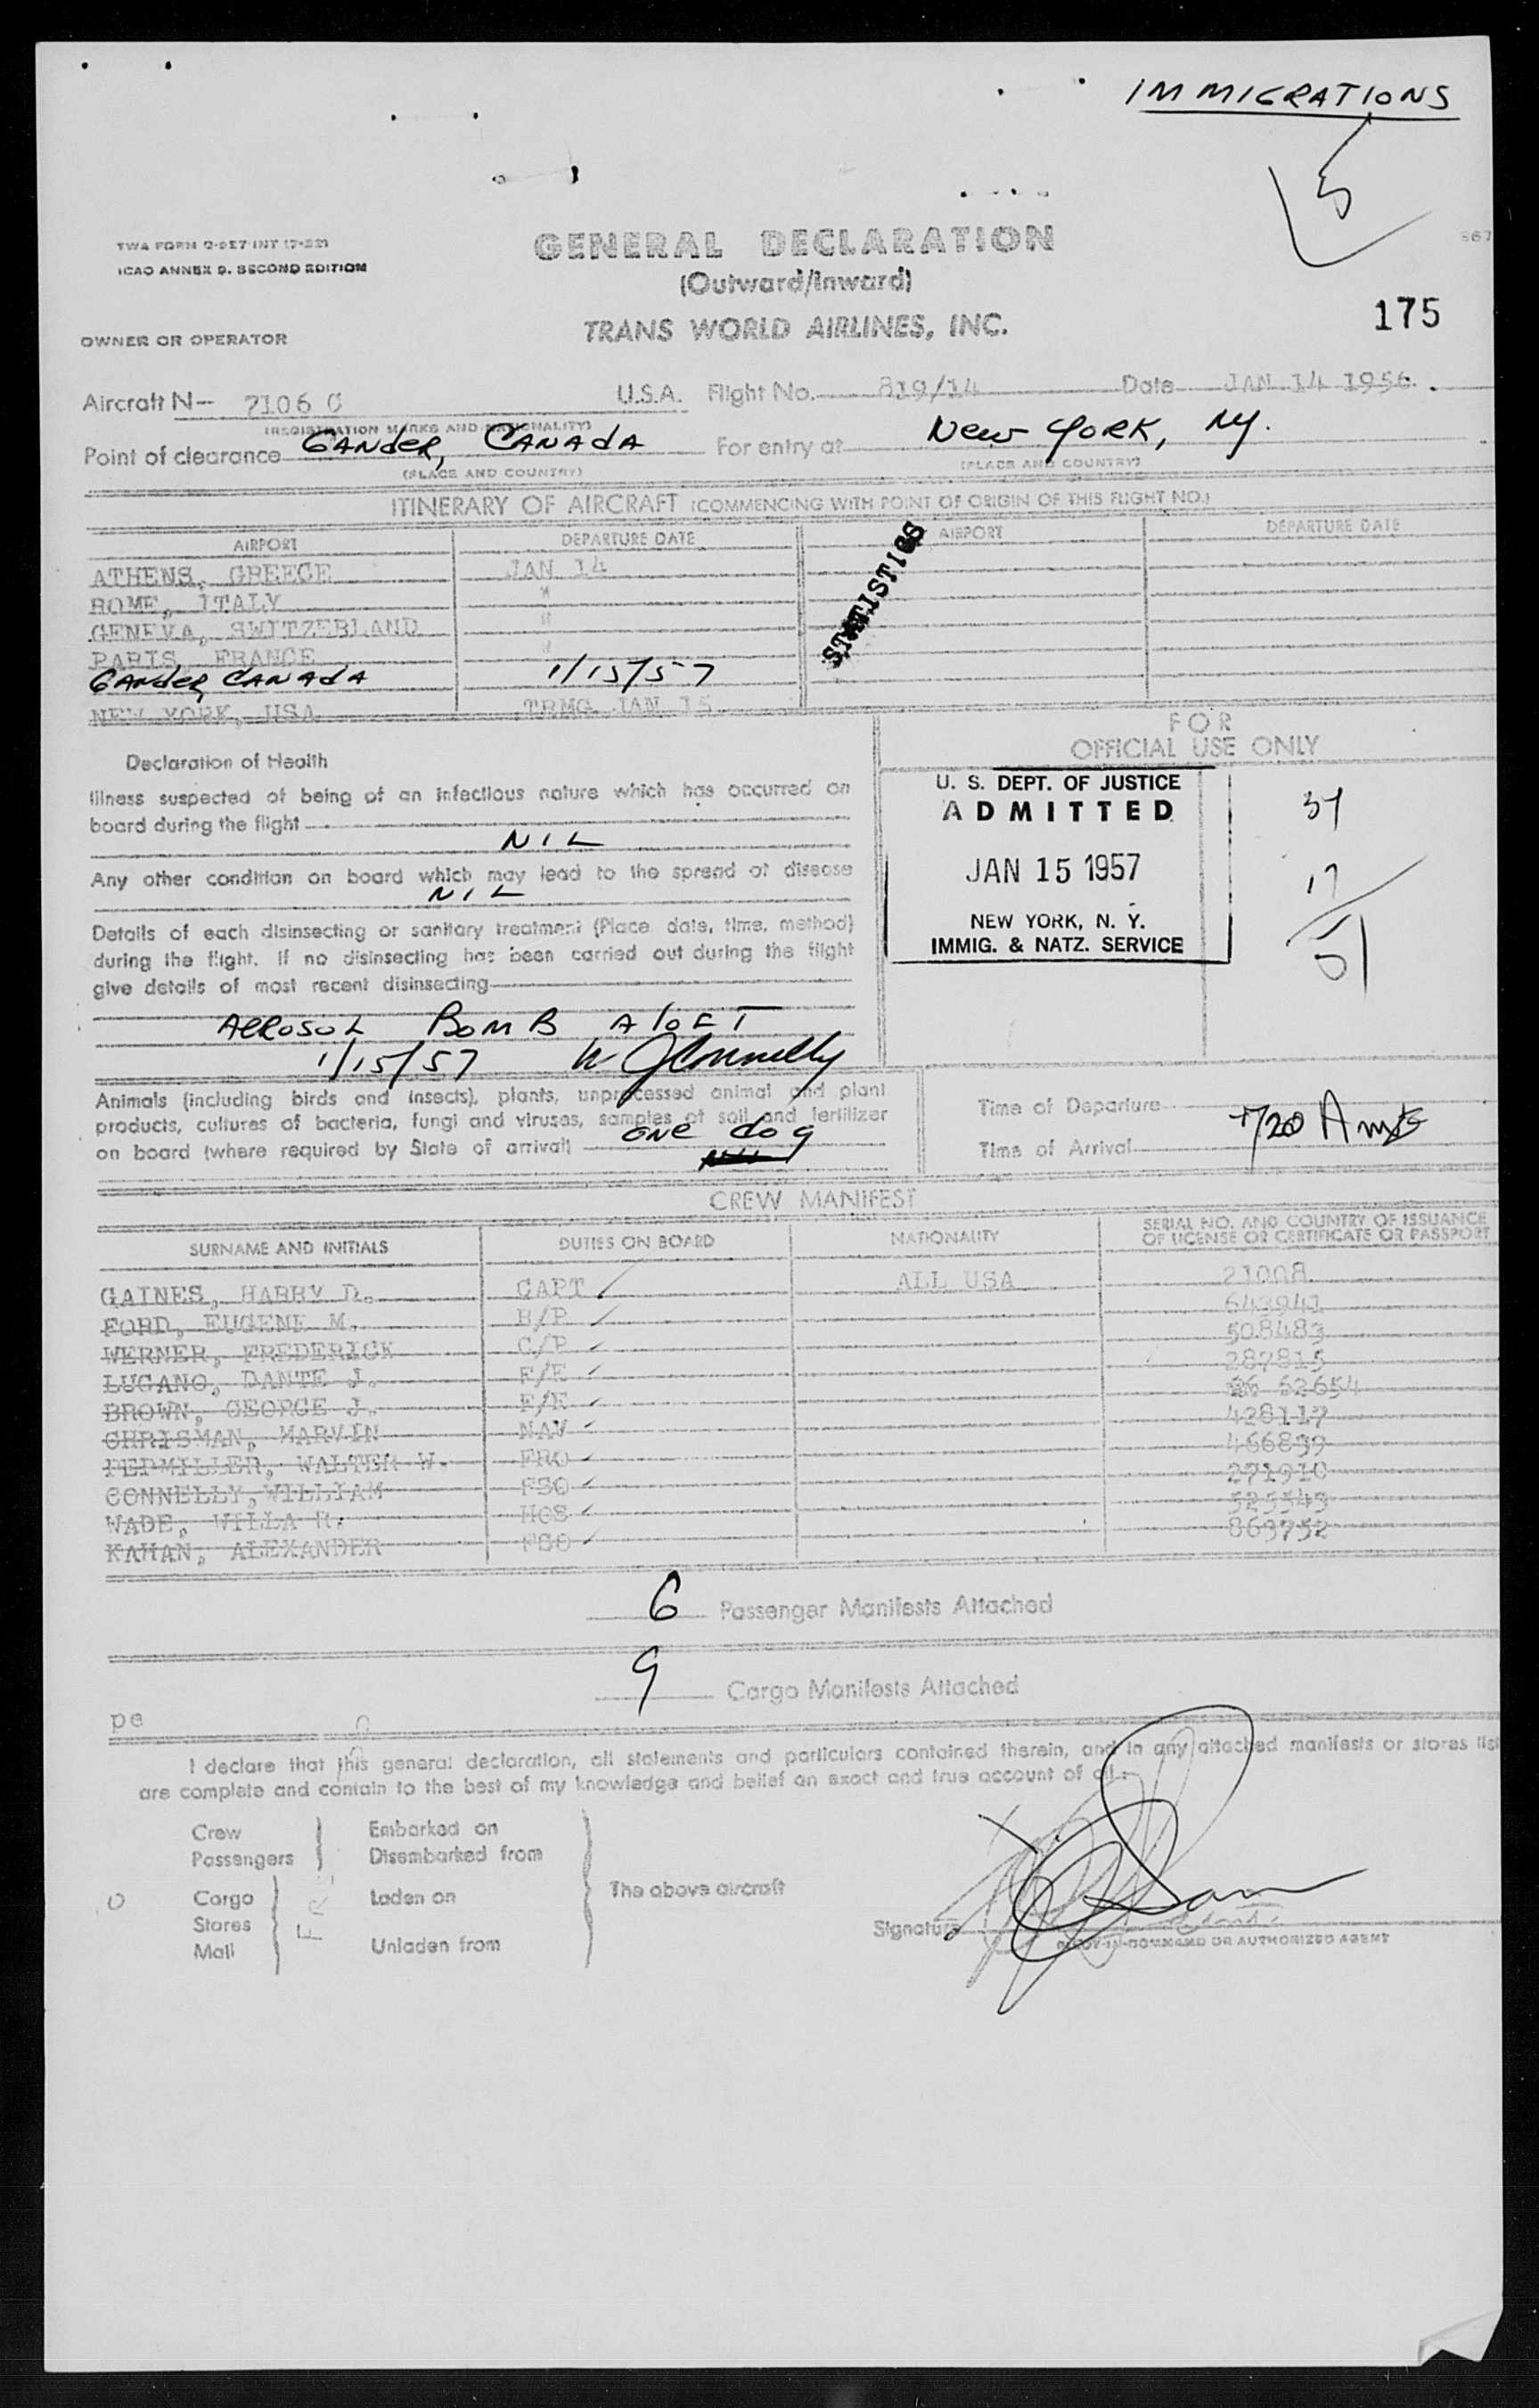 IMMIGRATIONS
5
ICAO ANNEX 9. SECOND EDITION
GENERAL DECLARATION
(Outward/Inward)
TRANS WORLD AIRLINES, INC.
175
OWNER OR OPERATOR
Aircraft N- 7106 C U.S.A. Flight No. 819/14 Date JAN 14 1956.
(REGISTRATION MARKS AND NATIONALITY)
Point of clearance GANdeR, CANAdA For entry at New YORK, NY.
(PLACE AND COUNTRY) (PLACE AND COUNTRY)
ITINERARY OF AIRCRAFT (COMMENCING WITH POINT OF ORIGIN OF THIS FLIGHT NO.)
AIRPORT DEPARTURE DATE AIRPORT DEPARTURE DATE
STATISTICS
ATHENS, GREECE JAN 14
ROME, ITALY "
GENEVA, SWITZERLAND "
PARIS, FRANCE "
GANdeR, CANAdA 1/15/57
NEW YORK, USA TRMG JAN 15
Declaration of Health
Illness suspected of being of an infectious nature which has occurred on
board during the flight
NIL
Any other condition on board which may lead to the spread of disease
NIL
Details of each disinsecting or sanitary treatment (Place, date, time, method)
during the flight. If no disinsecting has been carried out during the flight
give details of most recent disinsecting
AEROSOL BOMB AlOFT
1/15/57 W J Connelly
FOR
OFFICIAL USE ONLY
U. S. DEPT. OF JUSTICE
ADMITTED
JAN 15 1957
NEW YORK, N. Y.
IMMIG. & NATZ. SERVICE
17
51
Animals (including birds and insects), plants, unprocessed animal and plant
products, cultures of bacteria, fungi and viruses, samples of soil and fertilizer
on board (where required by State of arrival) one dog
Time of Departure
Time of Arrival 720 Am
CREW MANIFEST
SURNAME AND INITIALS DUTIES ON BOARD NATIONALITY SERIAL NO. AND COUNTRY OF ISSUANCE
OF LICENSE OR CERTIFICATE OR PASSPORT
GAINES, HARRY D. CAPT ALL USA 21008
FORD, EUGENE M. R/P 643941
WERNER, FREDERICK C/P 508483
LUGANO, DANTE J. F/E 287815
BROWN, GEORGE J. F/E 52654
CHRISMAN, MARVIN NAV 428117
FEDMILLER, WALTER W. FRO 466839
CONNELLY, WILLIAM FSO 271910
WADE, WILLA R. HOS 525543
KAHAN, ALEXANDER FSO 863752
6 Passenger Manifests Attached
9 Cargo Manifests Attached
pe
I declare that this general declaration, all statements and particulars contained therein, and in any attached manifests or stores list
are complete and contain to the best of my knowledge and belief an exact and true account of all:
Crew Embarked on
Passengers Disembarked from
Cargo Laden on The above aircraft
Stores
Mail Unladen from
Signature
PILOT-IN-COMMAND OR AUTHORIZED AGENT